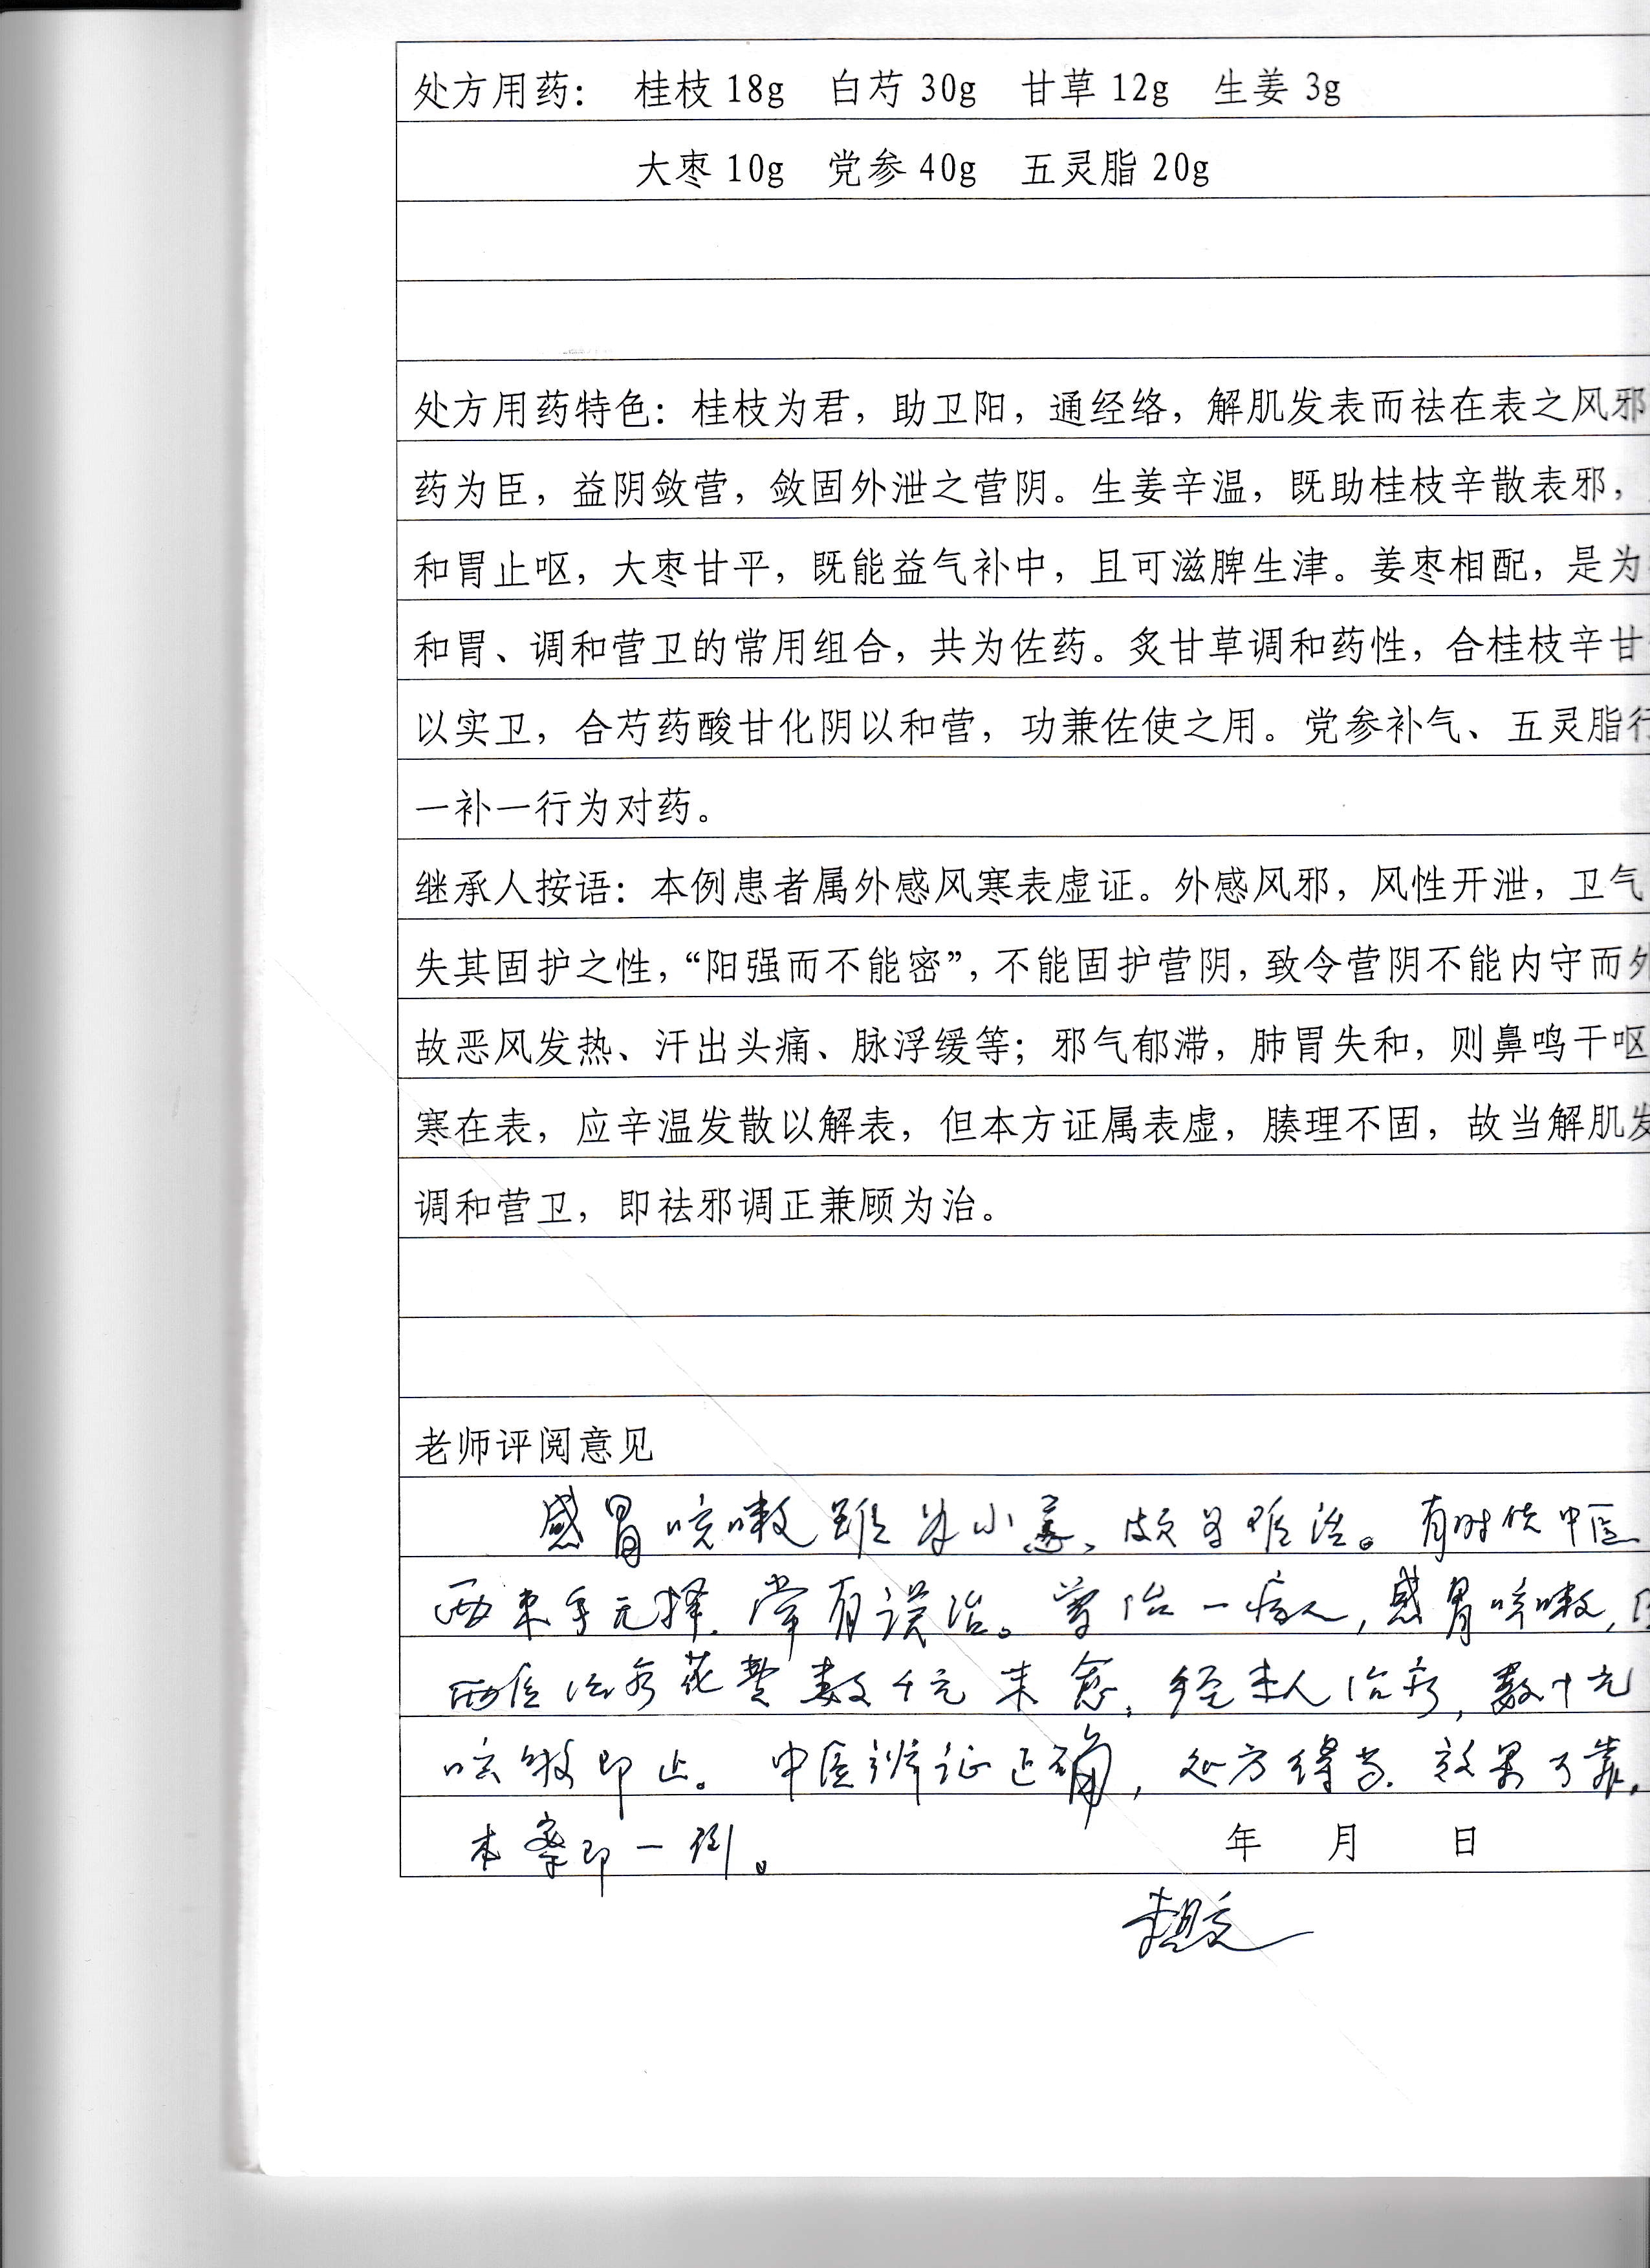 处方用药： 桂枝 18g 白芍 30g 甘草 12g 生姜 3g
大枣 10g 党参 40g 五灵脂 20g
处方用药特色：桂枝为君，助卫阳，通经络，解肌发表而祛在表之风邪
药为臣，益阴敛营，敛固外泄之营阴。生姜辛温，既助桂枝辛散表邪，
和胃止呕，大枣甘平，既能益气补中，且可滋脾生津。姜枣相配，是为
和胃、调和营卫的常用组合，共为佐药。炙甘草调和药性，合桂枝辛甘
以实卫，合芍药酸甘化阴以和营，功兼佐使之用。党参补气、五灵脂行
一补一行为对药。
继承人按语：本例患者属外感风寒表虚证。外感风邪，风性开泄，卫气
失其固护之性，“阳强而不能密”，不能固护营阴，致令营阴不能内守而外
故恶风发热、汗出头痛、脉浮缓等；邪气郁滞，肺胃失和，则鼻鸣干呕
寒在表，应辛温发散以解表，但本方证属表虚，腠理不固，故当解肌发
调和营卫，即祛邪调正兼顾为治。
老师评阅意见
感冒咳嗽虽为小恙、颇为难治。有时使中医
西束手无择，常有误治。曾治一病人，感冒咳嗽，
西医治疗花费数千元未愈，经本人治疗，数十元
咳嗽即止。中医辨证正确，处方得当，效果可靠，
本案即一例。 年 月 日